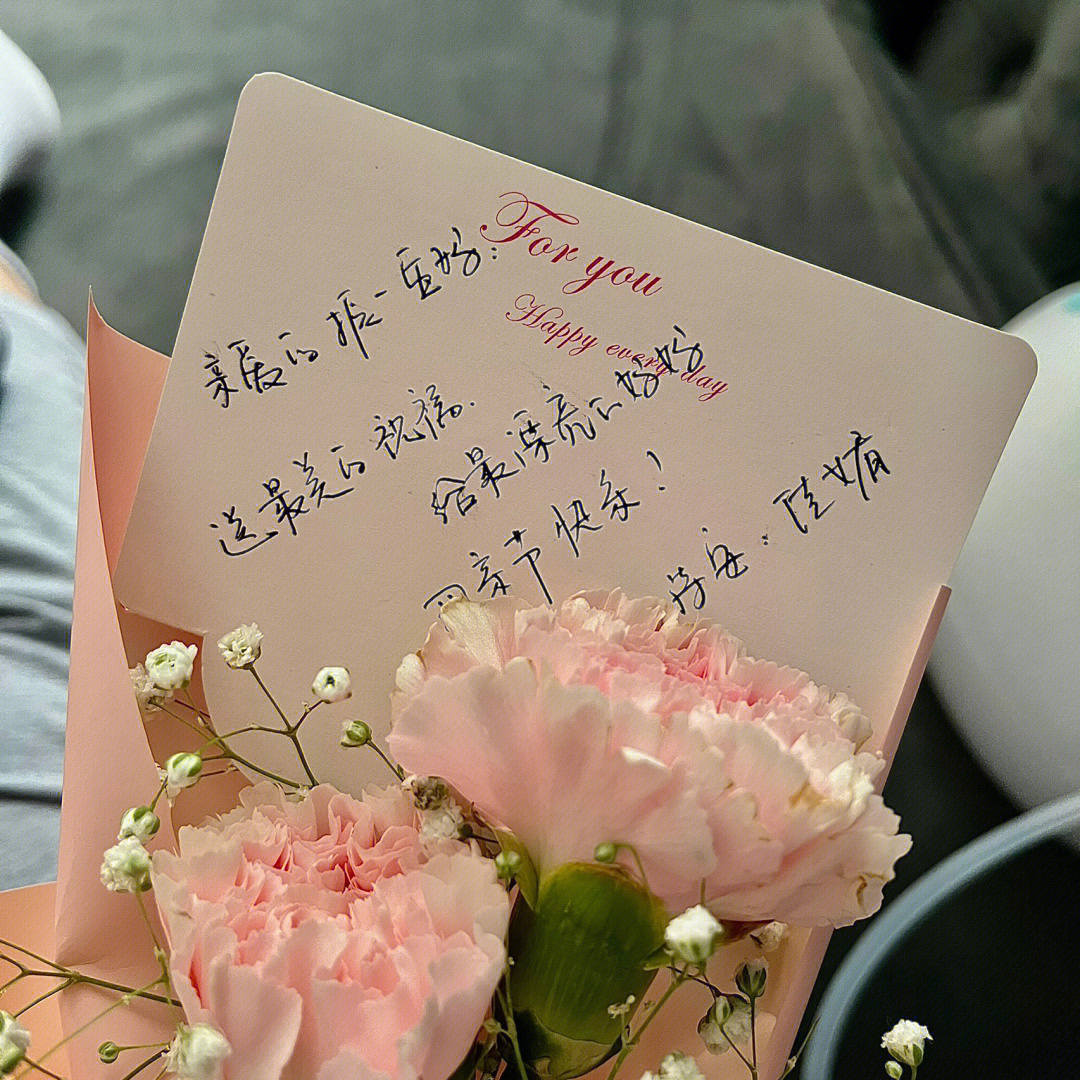 For you
Happy every day
亲爱的
送最美的祝福.
给最漂亮的妈妈
母亲节快乐!